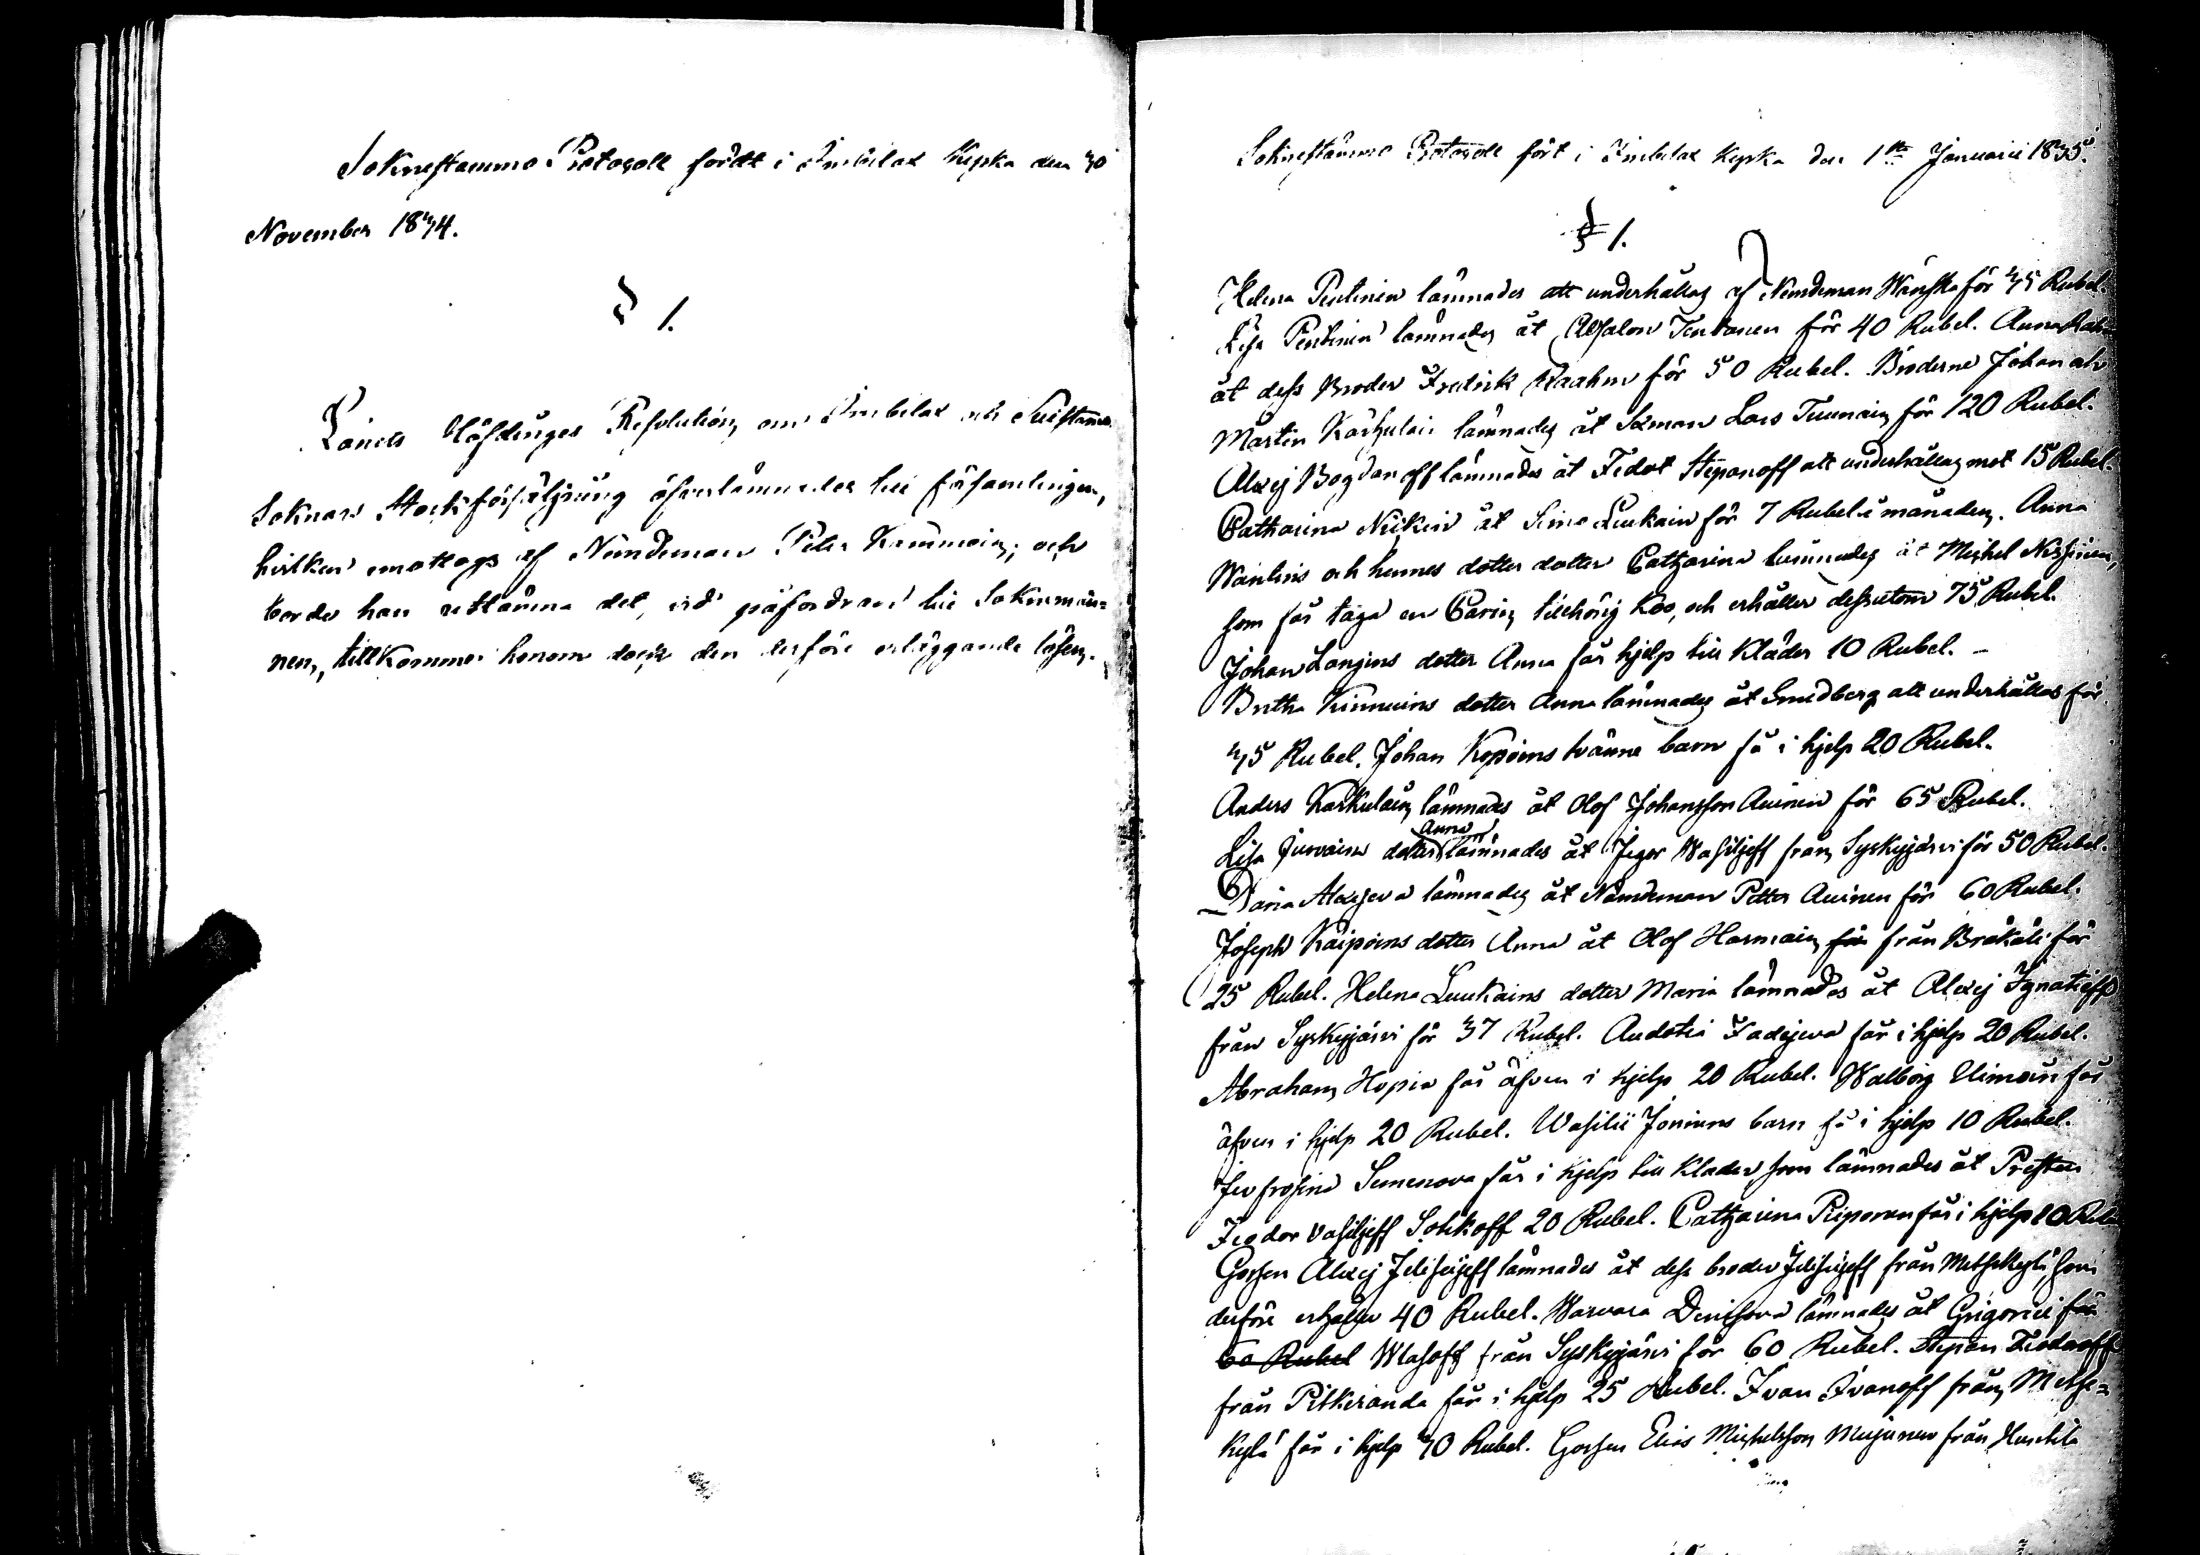 Soknestämmo Protocoll fördt i Imbilax Kyrka den 30
November 1834.
§ 1.
Länets Höfdinges Resolution, om Imbilax och Suistamo
Soknars Stockförsäljning öfverlämnades till församlingen,
hvilken emottogs af Nämdeman Peter Kammoin, och
borde han utlämna det, vid påfordran till Soknemän-
nen, tillkommer honom dock den derföre erläggande lösen.
Sokneståmmo Protocoll fört i Imbilax Kyrka den 1ste Januarii 1835.
§ 1.
Helena Pentinen lämnades att underhållas af Nämdeman Wänskä för 35 Rubel.
Lisa Pentinen lämnades åt Absalon Tentanen för 40 Rubel. Anna
åt dess Broder Fredrik Raahm för 50 Rubel. Bröderne Johan och
Mårtin Karhulain lämnades åt Lars Tuunain för 120 Rubel.
Alexej Bogdanoff lämnades åt Fedot Stepanoff att underhållas mot 15 Rubel.
Catharina Nickein åt Simo Luukain för 7 Rubel i månaden. Anna
och hennes dotter dotter Catharina lemnades åt Michel
som får taga en Carin tillhörig Koo, och erhåller dessutom 75 Rubel.
Johan Längins dotter Anna får hjelp till Kläder 10 Rubel. –
Britha Kinnuins dotter Anna lämnades åt Smedberg att underhållas för
35 Rubel. Johan Kopoins tvänne barn få i hjelp 20 Rubel.
Anders Karhulain lämnades åt Olof Johansson Auvinen för 65 Rubel.
Lisa Jurvains dotter Anna lämnades åt Jegor Wasiljeff från Syskyjärvi för 50 Rubel.
Daria Alexejeva lämnades åt Nämdeman Petter Auvinen för 60 Rubel.
Joseph Kaipoins dotter Anna åt Olof Harmain för från Bråkåli för
25 Rubel. Helena Luukains dotter Maria lämnades åt Alexej Ignatjeff
från Syskyjärvi för 37 Rubel. Audotia Fadejeva får i hjelp 20 Rubel.
Abraham Hopia får äfven i hjelp 20 Rubel. Walborg Uimoin får
äfven i hjelp 20 Rubel. Wasilii Joninens barn få i hjelp 10 Rubel.
Jevfrosina Semenova får i hjelp till Kläder som lämnades åt Presten
Feodor Vasiljeff Sotikoff 20 Rubel. Catharina Piiponen får i hjelp 20
Gossen Alexej Jelisejeff lämnades åt dess broder Jelisejeff från Metsekylä, som
derföre erhåller 40 Rubel. Warvara Denisova lämnades åt Grigorii för
60 Rubel Wlasoff från Syskyjärvi för 60 Rubel. Stepan Feodoroff
från Pitkeranda får i hjelp 25 Rubel. Ivan Ivanoff från Metse-
kylä får i hjelp 30 Rubel. Gossen Elias Michelsson Meijunen från